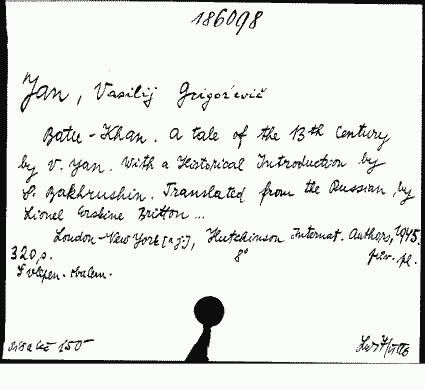 186098
Jan, Vasilij Grigor'evič
Batu-Khan. A tale of the 13th Century
by V. Yan. With a Historical Introduction by
S. Bakhrushin. Translated from the Russian by
Lionel Erskine Britton ...
London-New York [a j.], Hutchinson Internat. Authors, 1945.
320 p. 8° pův. pl.
S vlepen. obalem.
150